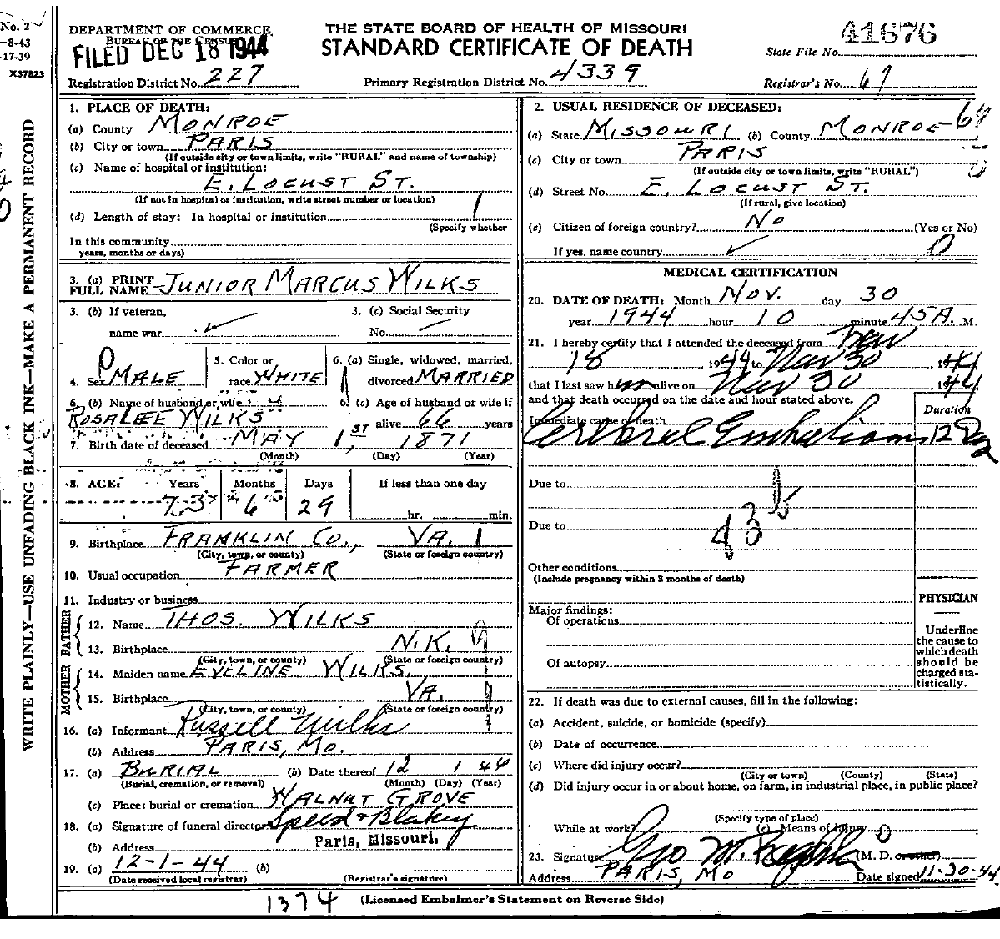 No. 2
-8-43
-17-39
X37823
WRITE PLAINLY—USE UNFADING BLACK INK—MAKE A PERMANENT RECORD
DEPARTMENT OF COMMERCE
BUREAU OF THE CENSUS
FILED DEC 18 1944
THE STATE BOARD OF HEALTH OF MISSOURI
STANDARD CERTIFICATE OF DEATH
41676
State File No.
Registration District No. 227
Primary Registration District No. 4339
Registrar's No. 67
1. PLACE OF DEATH:
(a) County MONROE
(b) City or town PARIS
(If outside city or town limits, write "RURAL" and name of township)
(c) Name of hospital or institution:
E. LOCUST ST.
(If not in hospital or institution, write street number or location)
(d) Length of stay: In hospital or institution
(Specify whether
In this community
years, months or days)
3. (a) PRINT FULL NAME JUNIOR MARCUS WILKS
3. (b) If veteran, name war
3. (c) Social Security No.
4. Sex MALE
5. Color or race WHITE
6. (a) Single, widowed, married, divorced MARRIED
6. (b) Name of husband or wife
ROSALEE WILKS
6. (c) Age of husband or wife if alive 66 years
7. Birth date of deceased MAY 1ST 1871
(Month) (Day) (Year)
8. AGE: Years Months Days If less than one day
73 6 29 hr. min.
9. Birthplace FRANKLIN CO., VA.
(City, town, or county) (State or foreign country)
10. Usual occupation FARMER
11. Industry or business
FATHER
12. Name THOS. WILKS
13. Birthplace N.K.
(City, town, or county) (State or foreign country)
MOTHER
14. Maiden name EVELINE WILKS
15. Birthplace VA.
(City, town, or county) (State or foreign country)
16. (a) Informant Russell Wilks
(b) Address PARIS, MO.
17. (a) BURIAL (b) Date thereof 12 1 44
(Burial, cremation, or removal) (Month) (Day) (Year)
(c) Place: burial or cremation WALNUT GROVE
18. (a) Signature of funeral director Speed & Blakey
(b) Address Paris, Missouri,
19. (a) 12-1-44 (b)
(Date received local registrar) (Registrar's signature)
2. USUAL RESIDENCE OF DECEASED:
(a) State MISSOURI (b) County MONROE
(c) City or town PARIS
(If outside city or town limits, write "RURAL")
(d) Street No. E. LOCUST ST.
(If rural, give location)
(e) Citizen of foreign country? No (Yes or No)
If yes, name country
MEDICAL CERTIFICATION
20. DATE OF DEATH: Month NOV. day 30
year 1944 hour 10 minute 45 A. M.
21. I hereby certify that I attended the deceased from Nov
18 1944 to Nov 30 1944
that I last saw him alive on Nov 30 1944
and that death occurred on the date and hour stated above.
Duration
Immediate cause of death
Cerebral Embolism 12
Due to
Due to
Other conditions
(Include pregnancy within 3 months of death)
Major findings:
Of operations
Of autopsy
PHYSICIAN
Underline the cause to which death should be charged statistically.
22. If death was due to external causes, fill in the following:
(a) Accident, suicide, or homicide (specify)
(b) Date of occurrence
(c) Where did injury occur?
(City or town) (County) (State)
(d) Did injury occur in or about home, on farm, in industrial place, in public place?
(Specify type of place)
While at work? (e) Means of injury
23. Signature Geo M. (M. D. or other)
Address PARIS, MO Date signed 11-30-44
1374 (Licensed Embalmer's Statement on Reverse Side)